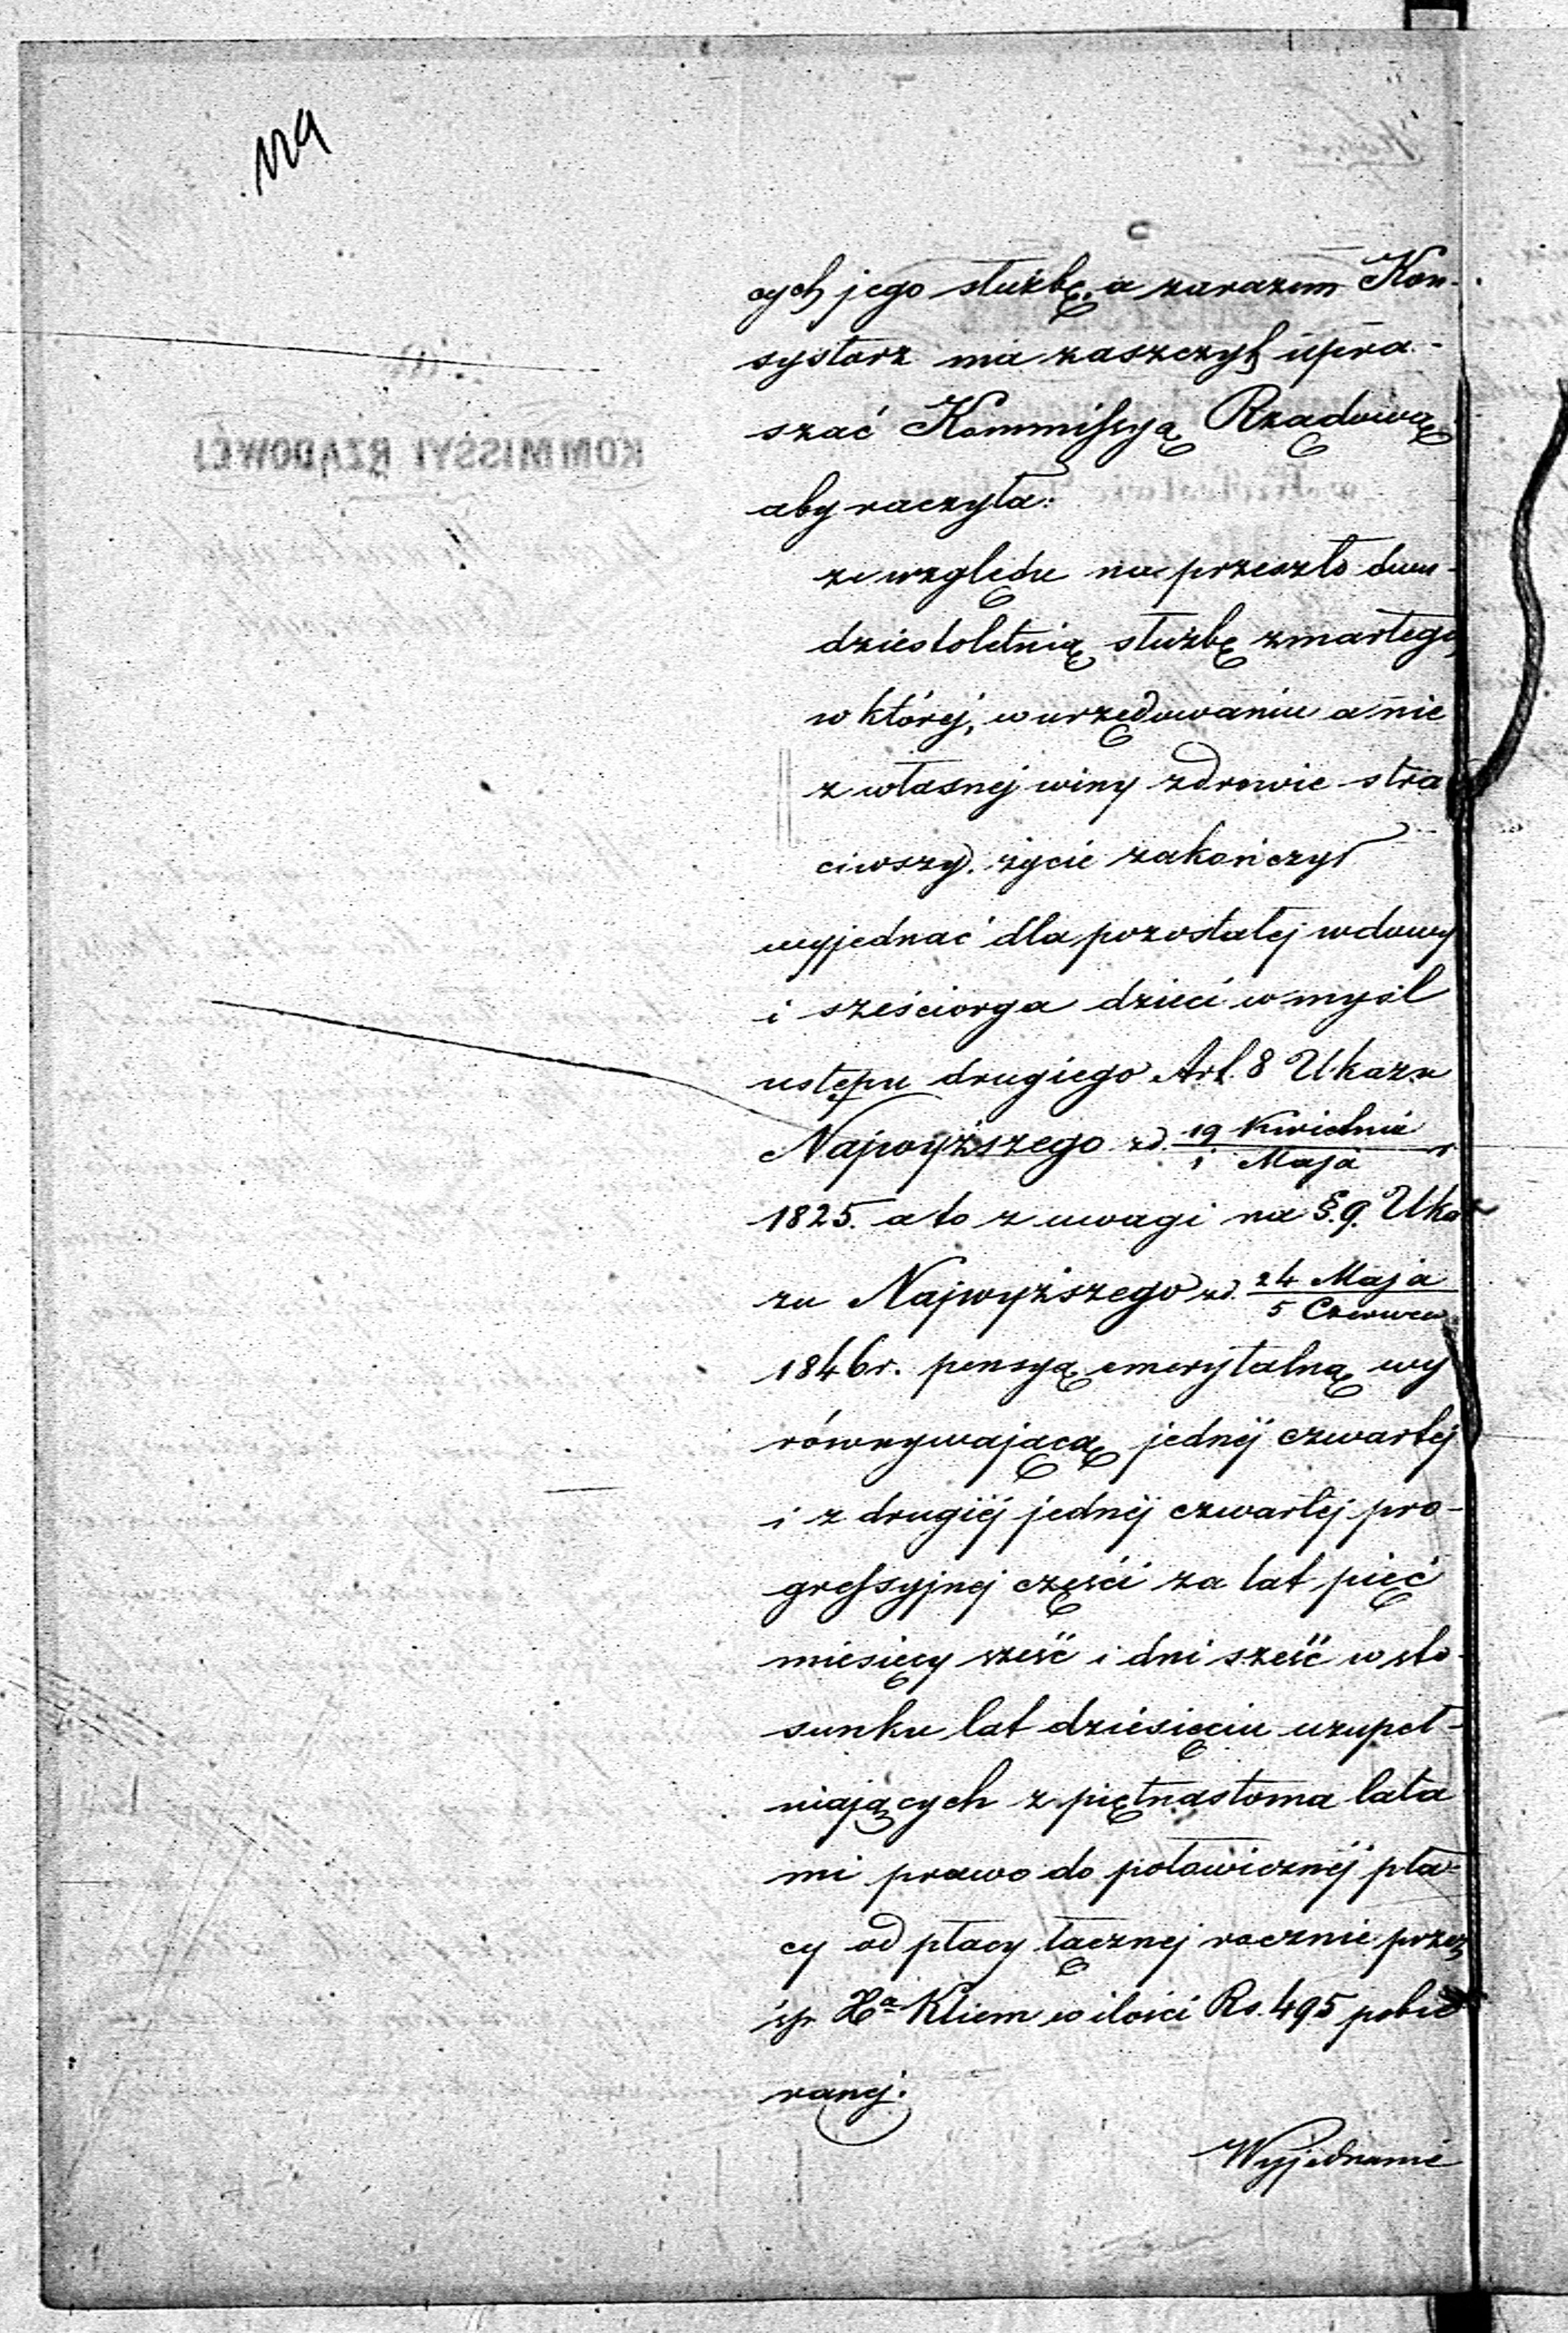 cych jego służbę, a zarazem Kon-
systorz ma zaszczyt upra-
szać Kommissyą Rządową
aby raczyła:
ze względu na przeszło dwu-
dziestoletnią służbę zmarłego,
w której, w urzędowaniu a nie
z własnej winy zdrowie stra
ciwszy, życie zakończył
wyjednać dla pozostałej wdowy
i sześciorga dzieci w myśl
ustępu drugiego Art. 8 Ukazu
Najwyższego zd. 19 Kwietnia / 1 Maja r.
1825. a to z uwagi na §. 9. Uka
zu Najwyższego zd. 24 Maja / 5 Czerwca
1846 r. pensyą emerytalną wy
równywającą jednéj czwartej
i z drugiéj jednéj czwartej pro-
gressyjnej części za lat pięć
miesięcy sześć i dni sześć w sto-
sunku lat dziesięciu uzupeł-
niających z piętnastoma lata
mi prawo do połowicznéj pła-
cy od płacy łącznej rocznie przez
śp. Xa Kliem w ilości Rs. 495 pobie
ranej.
Wyjednanie
KOMMISSYI RZĄDOWÉJ